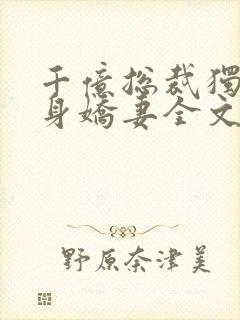 千億總裁獨
身嬌妻全文
野原奈津美